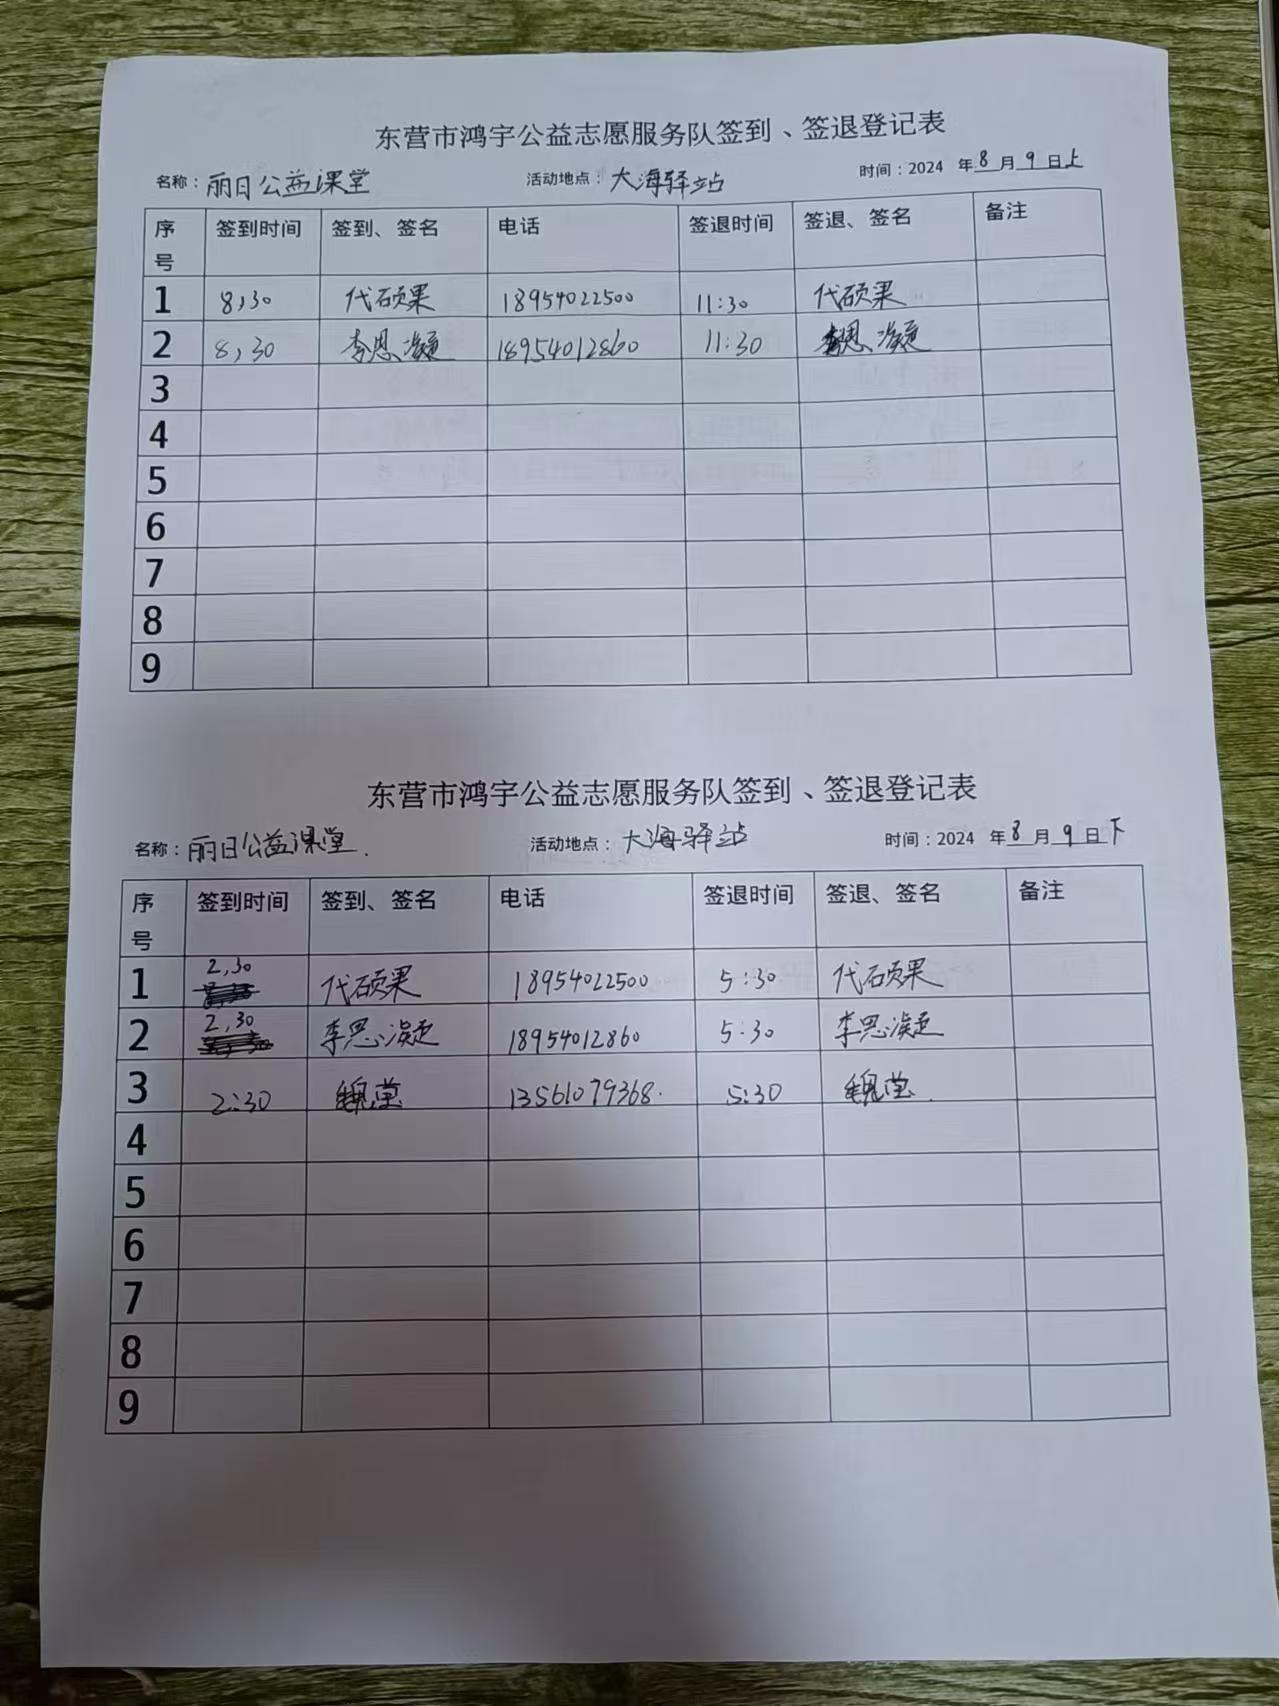 东营市鸿宇公益志愿服务队签到、签退登记表
名称：丽日公益课堂 活动地点：大海驿站 时间：2024 年8月9日上
序号 签到时间 签到、签名 电话 签退时间 签退、签名 备注
1 8,30 代硕果 18954022500 11:30 代硕果
2 8,30 李思凝 18954012860 11:30 李思凝
3
4
5
6
7
8
9
东营市鸿宇公益志愿服务队签到、签退登记表
名称：丽日公益课堂. 活动地点：大海驿站 时间：2024 年8月9日下
序号 签到时间 签到、签名 电话 签退时间 签退、签名 备注
1 2,30 代硕果 18954022500 5:30 代硕果
2 2,30 李思凝 18954012860 5:30 李思凝
3 2:30 13561079368. 5:30
4
5
6
7
8
9